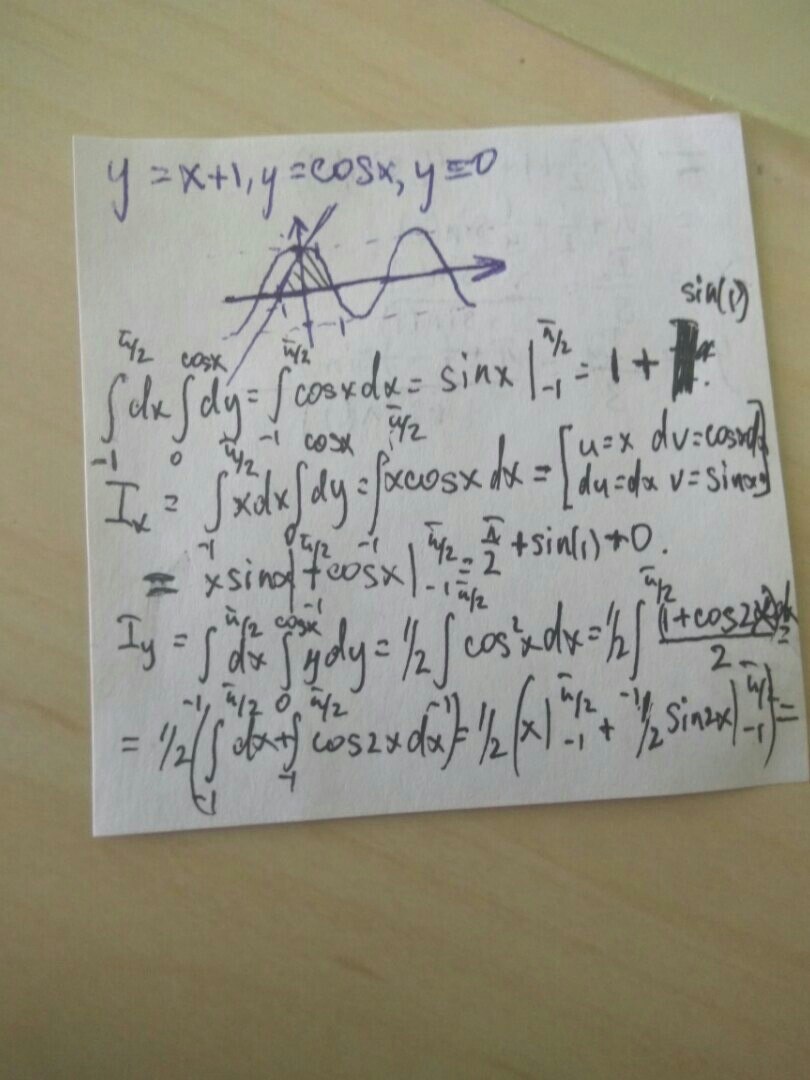 y = x+1, y = cosx, y = 0
1
-1
sin(1)
∫_{-1}^{π/2} dx ∫_0^{cosx} dy = ∫_{-1}^{π/2} cosx dx = sinx |_{-1}^{π/2} = 1 +
I_x = ∫_{-1}^{π/2} xdx ∫_0^{cosx} dy = ∫_{-1}^{π/2} xcosx dx = [u = x dv = cosxdx
du = dx v = sinx]
= xsinx|_{-1}^{π/2} + cosx|_{-1}^{π/2} = π/2 + sin(1) + 0.
I_y = ∫_{-1}^{π/2} dx ∫_0^{cosx} ydy = 1/2 ∫_{-1}^{π/2} cos²xdx = 1/2 ∫_{-1}^{π/2} (1+cos2x)dx/2 =
= 1/2 (∫_{-1}^{π/2} dx + ∫_{-1}^{π/2} cos2xdx) = 1/2 (x|_{-1}^{π/2} + 1/2 sin2x|_{-1}^{π/2}) =